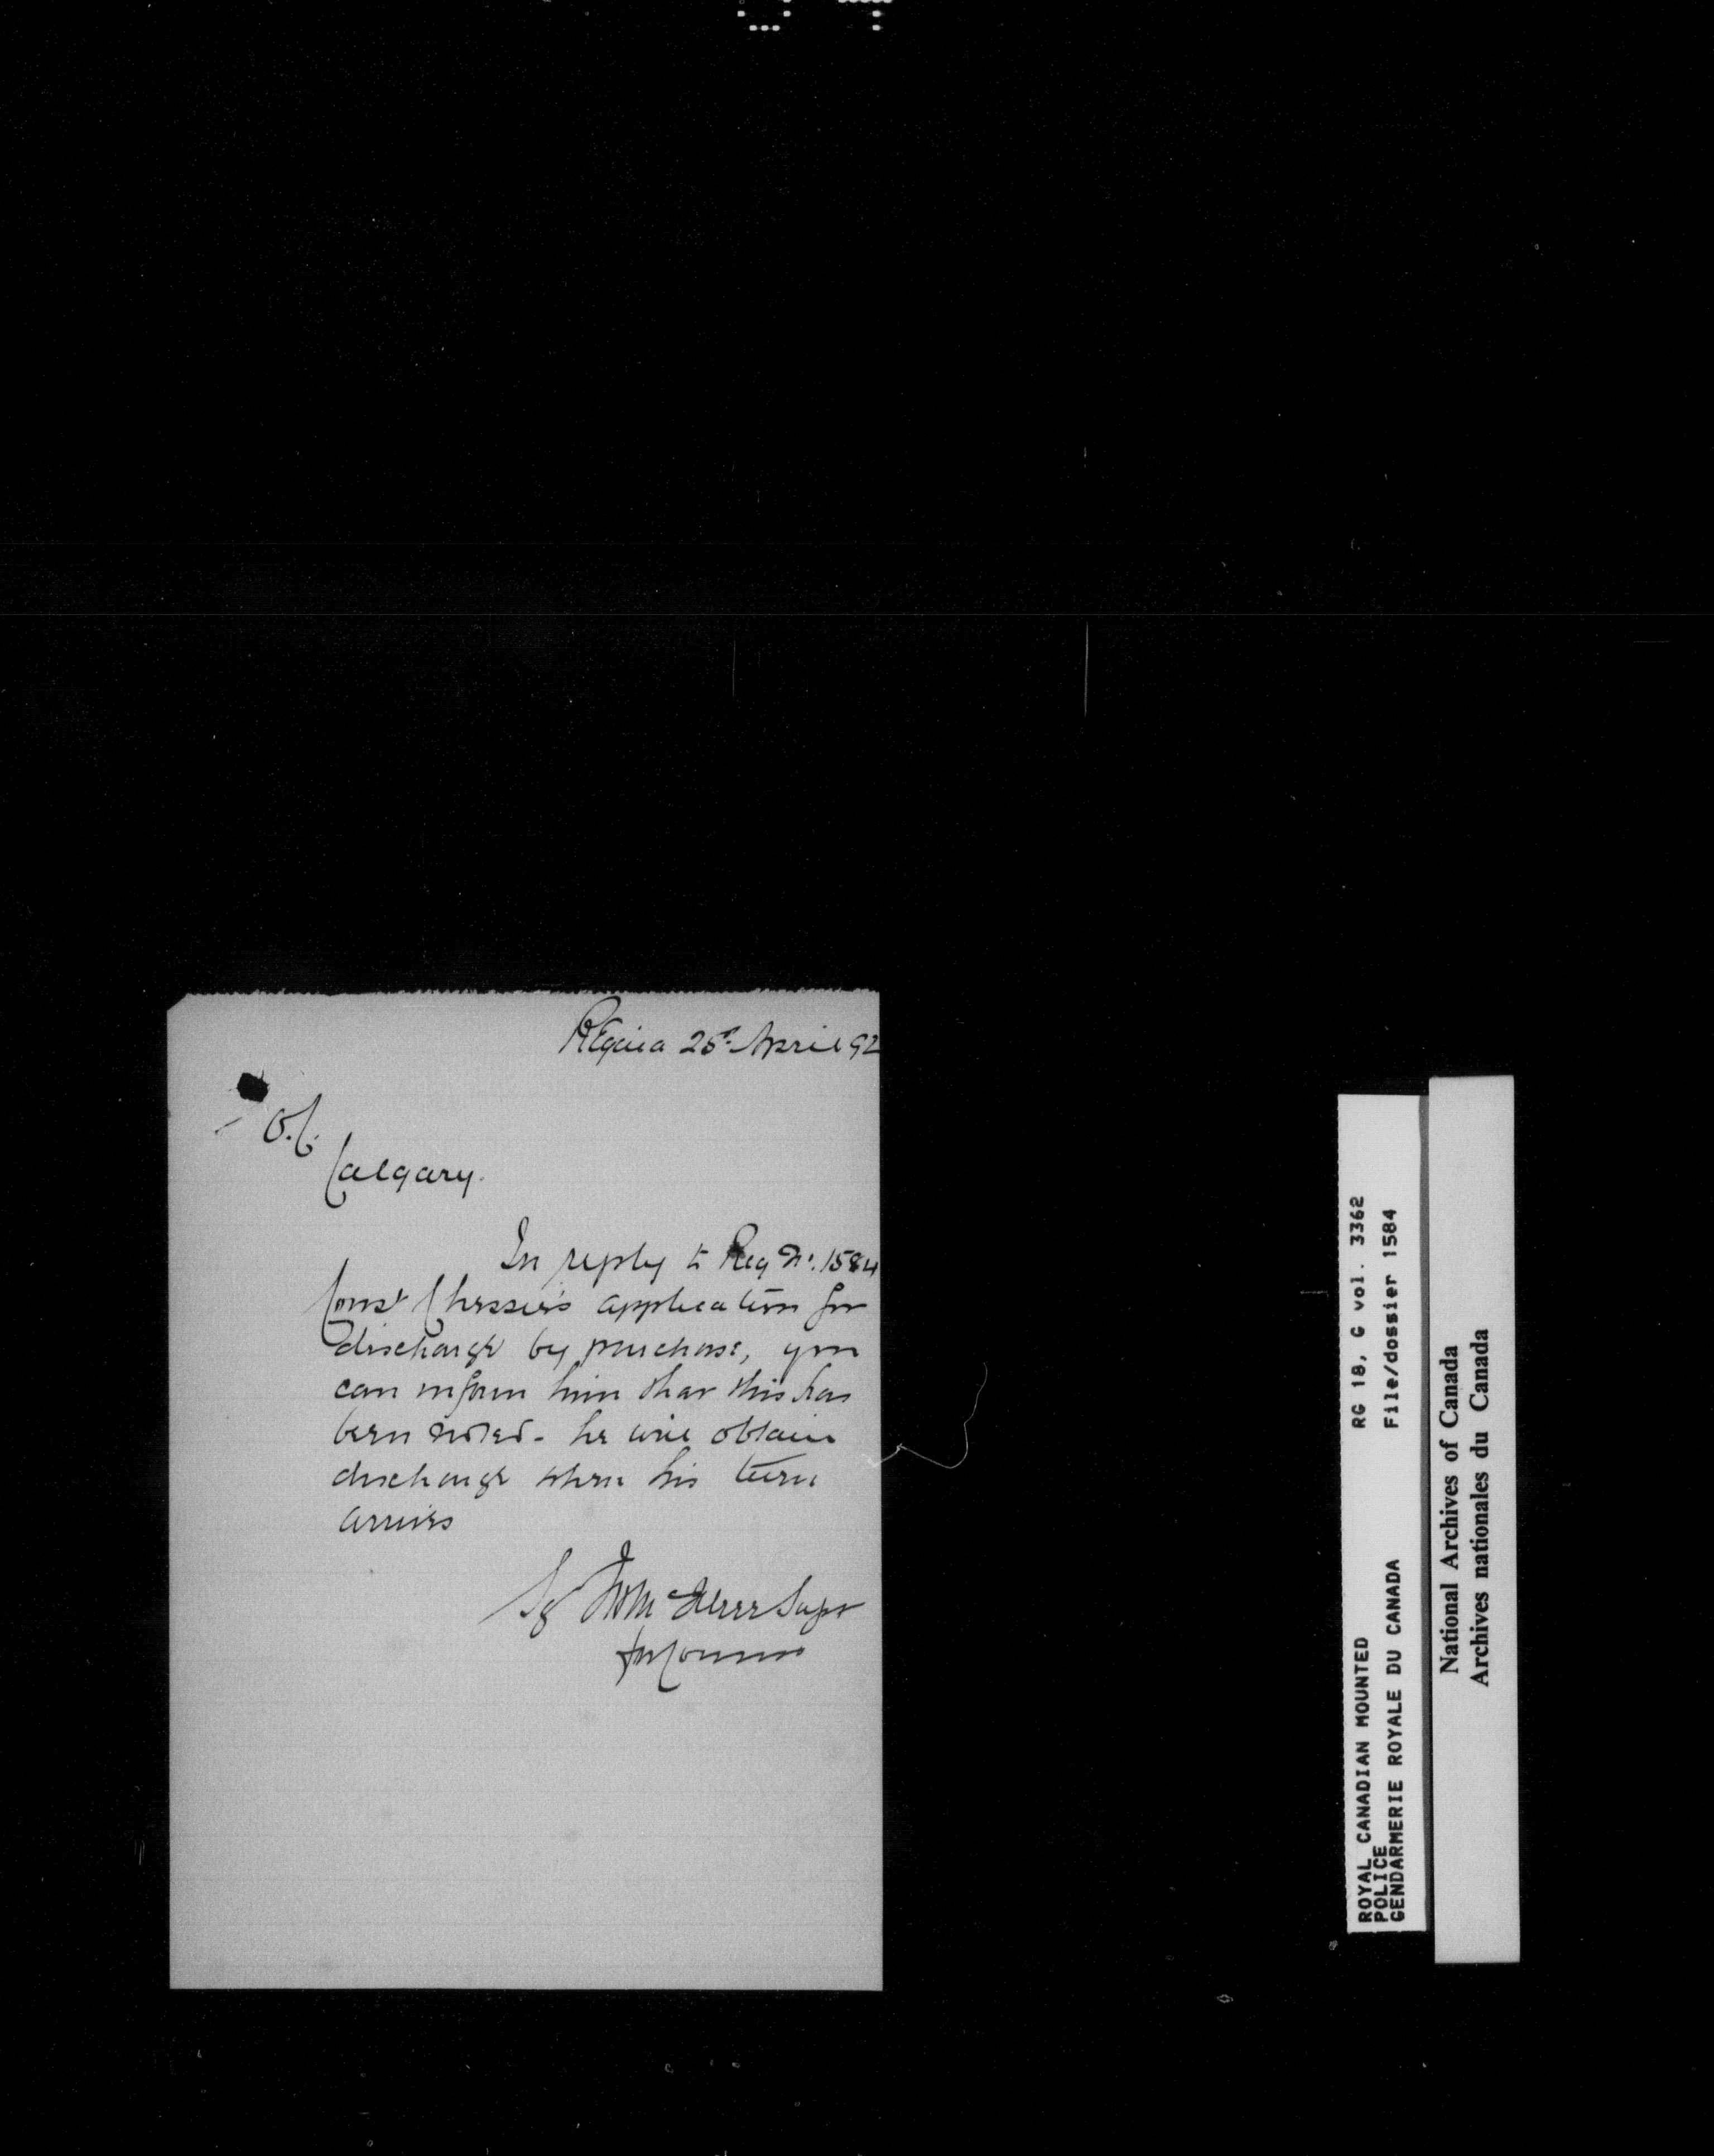 Regina 25th April 92
O.C.
Calgary.
In reply to Reg No. 1584
Const Chessir's application for
discharge by purchase, you
can inform him that this has
been noted - he will obtain
discharge when his turn
arrives
Supt
for Commr
ROYAL CANADIAN MOUNTED
POLICE
GENDARMERIE ROYALE DU CANADA
RG 18, G vol. 3362
File/dossier 1584
National Archives of Canada
Archives nationales du Canada